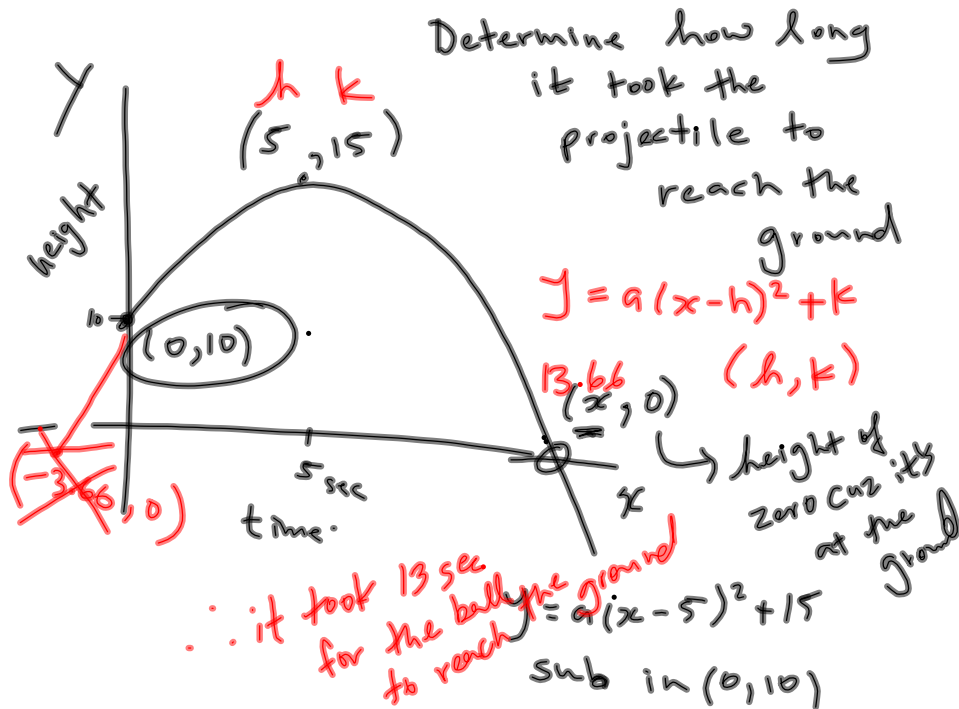 Determine how long
it took the
projectile to
reach the
ground
y
height
h k
(5, 15)
10
(0,10)
y = a(x-h)² + k
(h, k)
13.66
(x, 0)
height of
zero cuz it's
at the
ground
(-3.66, 0)
5 sec
time.
x
∴ it took 13 sec.
for the ball
to reach the ground
y = a(x-5)² + 15
sub in (0,10)